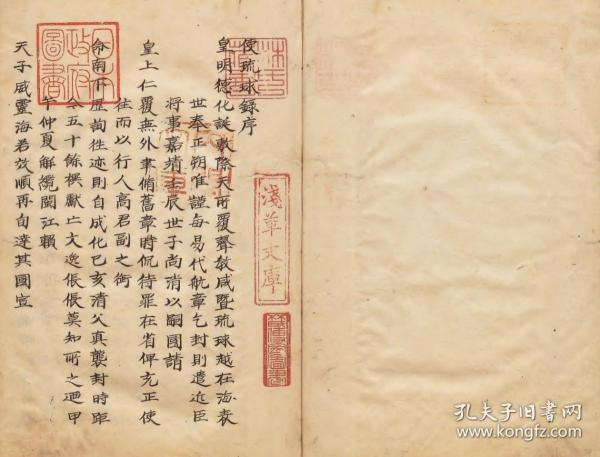 使琉球錄序
皇明德化誕敷際天所覆聲敎咸曁琉球越在海表
世奉正朔惟謹每易代航章乞封則遣近臣
將事嘉靖壬辰世子尚清以嗣國請
皇上仁覆無外聿脩舊章時侃待罪在省俾充正使
往而以行人高君副之銜
命南下歷詢往迹則自成化己亥清父真襲封時距
今五十餘禩獻亡文逸倀倀莫知所之廼甲
午仲夏解纜閩江賴
天子威靈海若效順再旬達其國宣
淺草文庫
日本
政府
圖書
林氏
藏書
孔夫子旧书网
www.kongfz.com